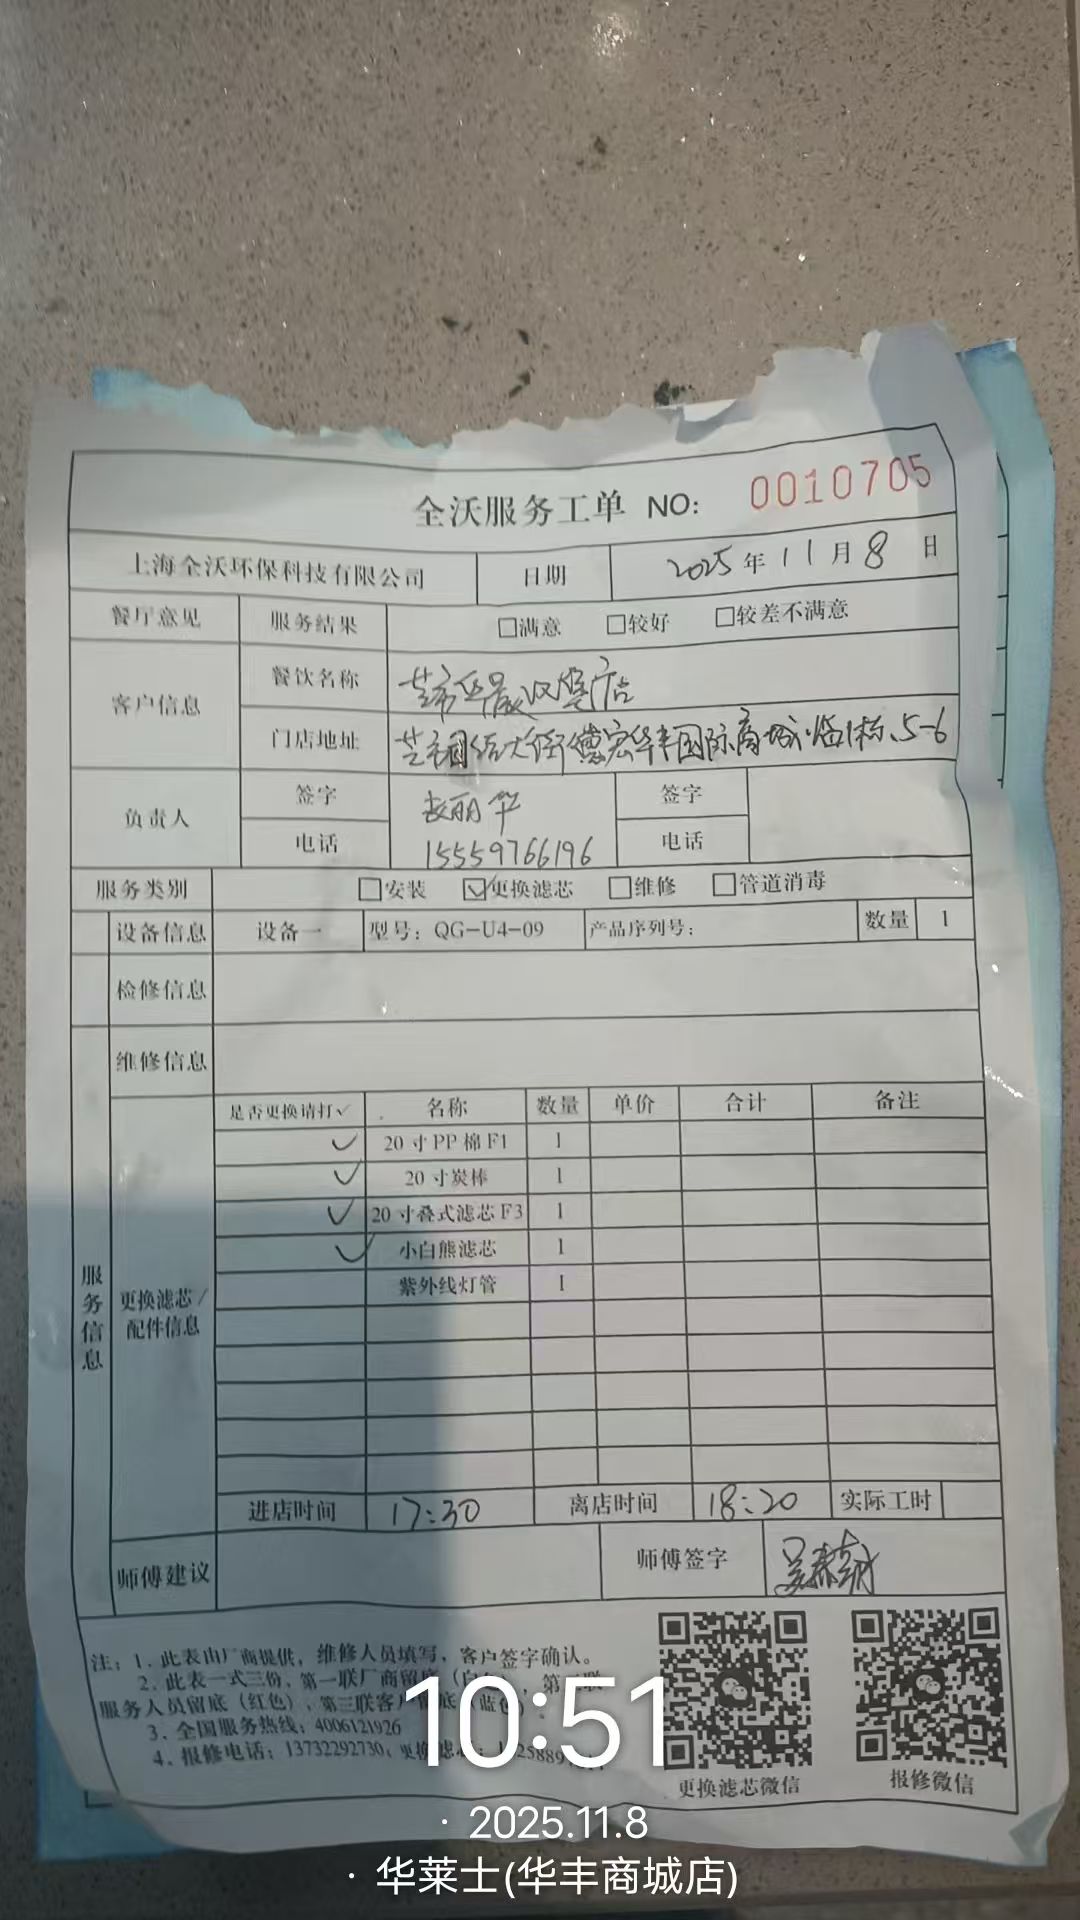 全沃服务工单 NO: 0010705
上海全沃环保科技有限公司 日期 2025年11月8日
餐厅意见 服务结果 □满意 □较好 □较差不满意
客户信息 餐饮名称
门店地址 华丰国际商城 5-6
负责人 签字 签字
电话 15559766196 电话
服务类别 □安装 ☑更换滤芯 □维修 □管道消毒
设备信息 设备一 型号：QG-U4-09 产品序列号： 数量 1
检修信息
维修信息
服务信息
更换滤芯/配件信息
是否更换请打✓ 名称 数量 单价 合计 备注
✓ 20寸PP棉F1 1
✓ 20寸炭棒 1
✓ 20寸叠式滤芯F3 1
✓ 小白熊滤芯 1
紫外线灯管 1
进店时间 17:30 离店时间 18:20 实际工时
师傅建议 师傅签字
注：1. 此表由厂商提供，维修人员填写，客户签字确认。
2. 此表一式三份，第一联厂商留底
服务人员留底（红色），第三联客户
3. 全国服务热线：4006121926
4. 报修电话：13732292730，
更换滤芯微信 报修微信
10:51
· 2025.11.8
· 华莱士(华丰商城店)